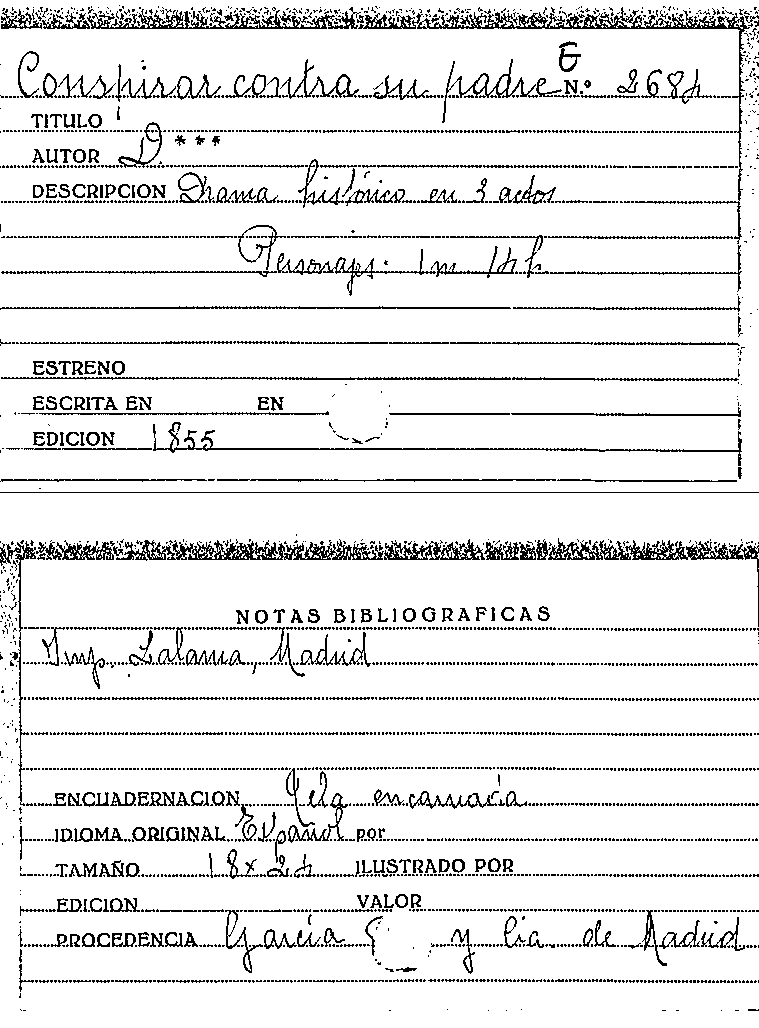 E
Conspirar contra su padre N.º 2684
TITULO
AUTOR D. ***
DESCRIPCION Drama histórico en 3 actos
Personajes: 1 m 14 h
ESTRENO
ESCRITA EN EN
EDICION 1855
NOTAS BIBLIOGRAFICAS
Imp. Lalama, Madrid
ENCUADERNACION Tela encarnada
IDIOMA ORIGINAL Español por
TAMAÑO 18 x 24 ILUSTRADO POR
EDICION VALOR
PROCEDENCIA García E y Cia. de Madrid